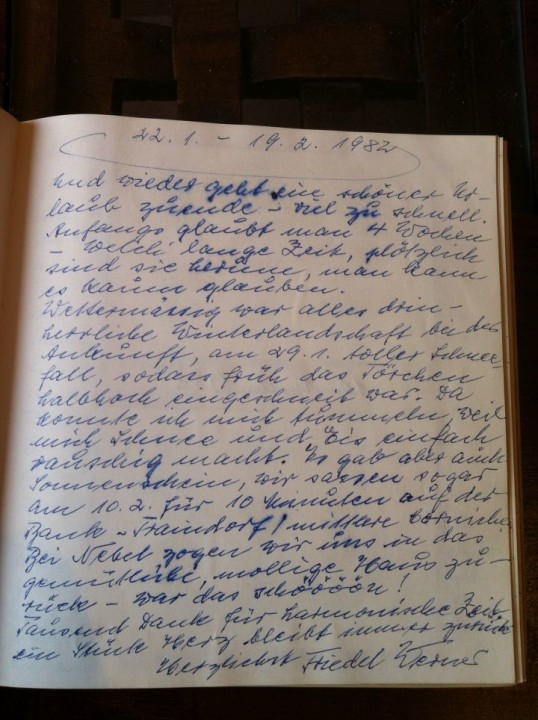 22. 1. - 19. 2. 1982
Und wieder geht ein schöner Ur-
laub zuende - viel zu schnell.
Anfangs glaubt man 4 Wochen
- welch lange Zeit, plötzlich
sind sie herum, man kann
es kaum glauben.
Wettermässig war alles drin -
herrliche Winterlandschaft bei der
Ankunft, am 29. 1. toller Schnee-
fall, sodass früh das Törchen
halbhoch eingeschneit war. Da
konnte ich mich tummeln, weil
mich Schnee und Eis einfach
rauschig macht. Es gab aber auch
Sonnenschein, wir sassen sogar
am 10. 2. für 10 Minuten auf der
Bank - Traindorf!
Bei Nebel zogen wir uns in das
gemütliche, mollige Haus zu-
rück - war das schööööön!
Tausend Dank für harmonische Zeit
ein Stück Herz bleibt immer zurück
Herzlichst Friedel Werner